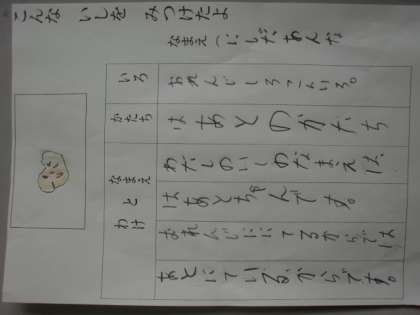 こんな いしを みつけたよ
なまえ(にしだ あんな
いろ
おれんじしろこんいろ。
かたち
はあとのかたち
なまえ と わけ
わたしのいしのなまえは、
はあとちゃんです。
おれんじににてるからでは
あとにているからです。